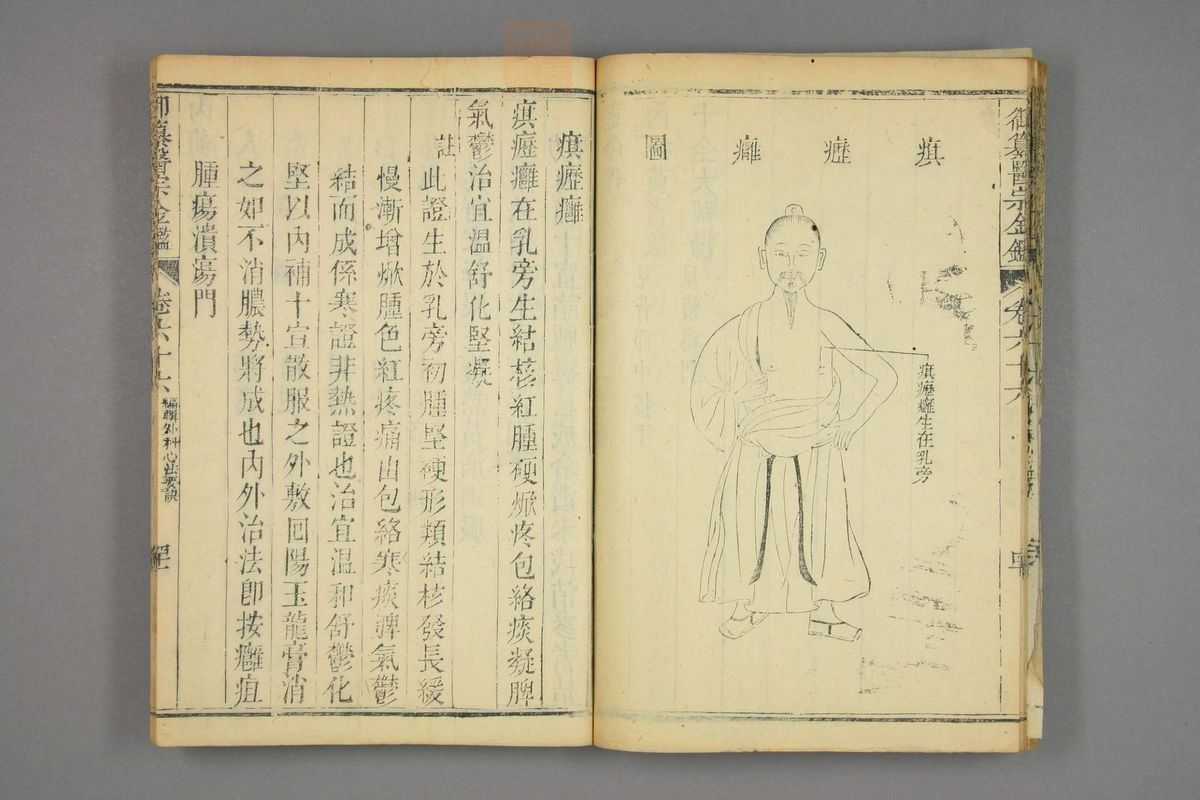 御纂醫宗金鑑
卷六十六
瘨瘱癰圖
瘨瘱癰生在乳旁
瘨瘱癰
瘨瘱癰在乳旁生結核紅腫硬焮疼包絡痰凝脾
氣鬱治宜溫舒化堅凝
註此證生於乳旁初腫堅硬形類結核發長緩
慢漸增焮腫色紅疼痛由包絡寒痰脾氣鬱
結而成係寒證非熱證也治宜溫和舒鬱化
堅以內補十宣散服之外敷回陽玉龍膏消
之如不消膿勢將成也內外治法卽按癰疽
腫瘍潰瘍門
御纂醫宗金鑑
卷六十六
編輯外科心法要訣